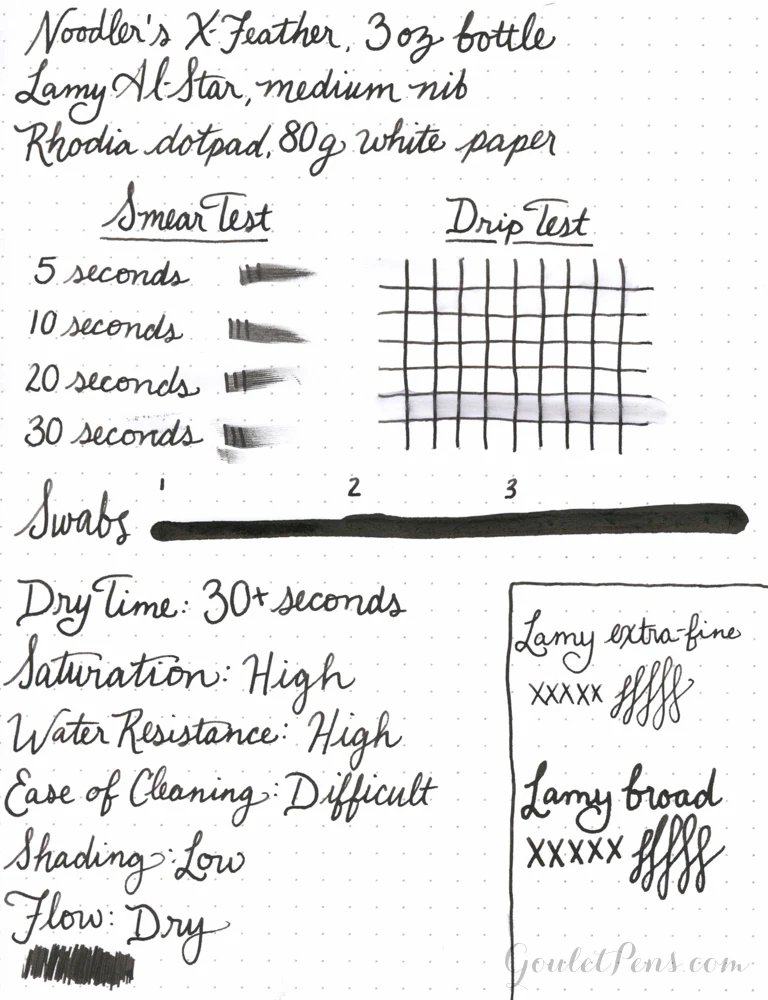 Noodler's X-Feather, 3 oz bottle
Lamy Al-Star, medium nib
Rhodia dotpad, 80g white paper
Smear Test
Drip Test
5 seconds
10 seconds
20 seconds
30 seconds
1 2 3
Swabs
Dry Time: 30+ seconds
Saturation: High
Water Resistance: High
Ease of Cleaning: Difficult
Shading: Low
Flow: Dry
Lamy extra-fine
xxxxx
Lamy broad
xxxxx
GouletPens.com